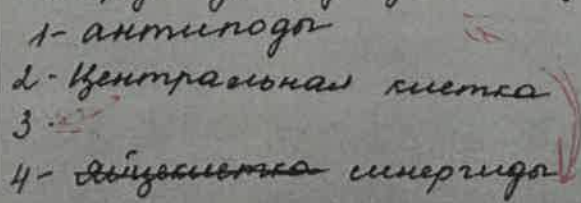 1- антиподы
2- Центральная клетка
3-
4- яйцеклетка синергиды